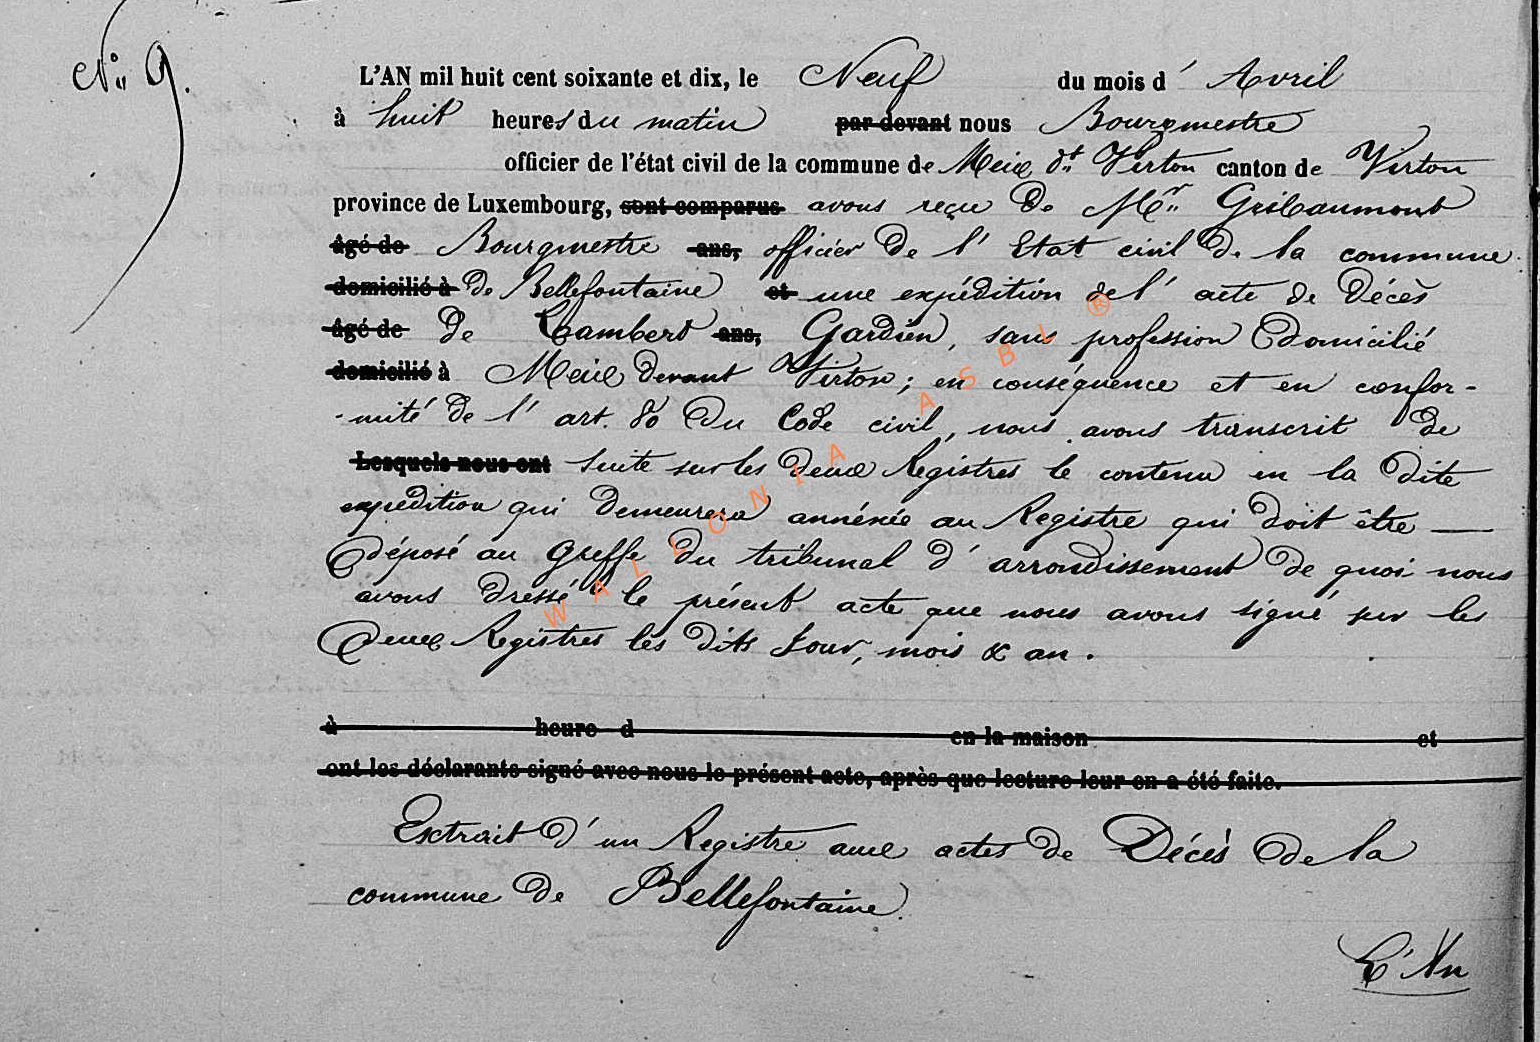 N° 9.
L'AN mil huit cent soixante et dix, le Neuf du mois d' Avril
à huit heures du matin par devant nous Bourgmestre
officier de l'état civil de la commune de Meix dt Virton canton de Virton
province de Luxembourg, sont comparus avons reçu de Mr Gribaumont
âgé de Bourgmestre ans, officier de l' Etat civil de la commune
domicilié à de Bellefontaine et une expédition de l' acte de Décès
âgé de de Lambert ans, Gardien, sans profession Domicilié
domicilié à Meix devant Virton; en conséquence et en confor-
-mité de l' art. 80 du Code civil, nous avons transcrit de
Lesquels nous ont suite sur les deux Registres le contenu en la dite
expédition qui demeurera annéxée au Registre qui doit être —
déposé au Greffe du tribunal d' arrondissement de quoi nous
avons dressé le présent acte que nous avons signé sur les
deux Registres les dits jour, mois & an.
à heure d en la maison et
ont les déclarants signé avec nous le présent acte, après que lecture leur en a été faite.
Extrait d' un Registre aux actes de Décès de la
commune de Bellefontaine.
L'An
WALLONIA ASBL ®